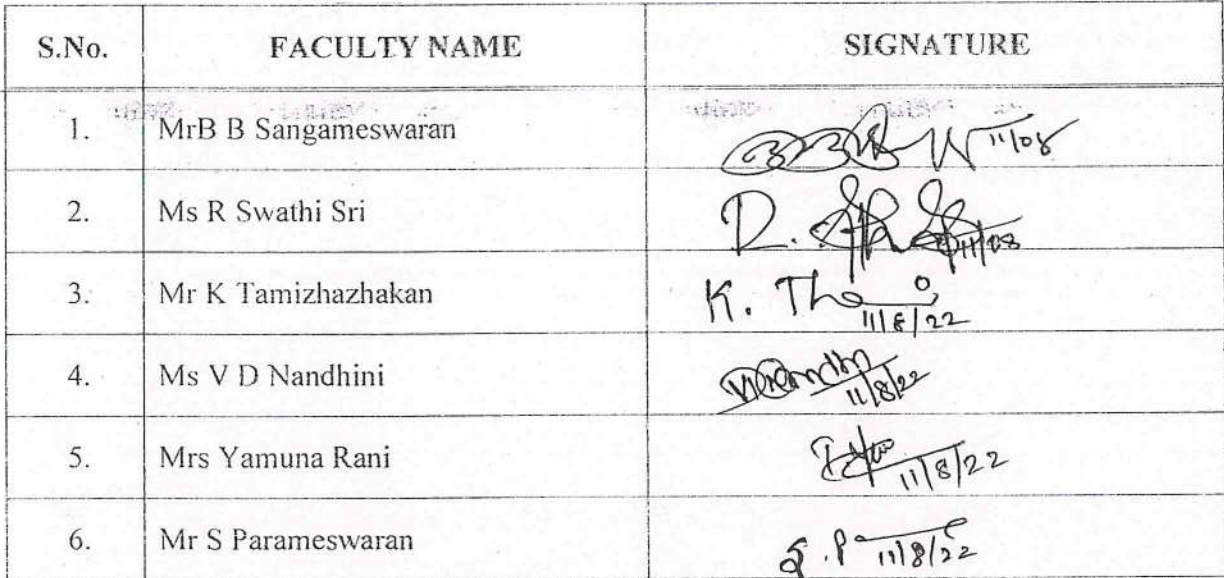 S.No. FACULTY NAME SIGNATURE
1. MrB B Sangameswaran 11/08
2. Ms R Swathi Sri 11/08
3. Mr K Tamizhazhakan K. Th 11/8/22
4. Ms V D Nandhini 11/8/22
5. Mrs Yamuna Rani 11/8/22
6. Mr S Parameswaran S. P 11/8/22